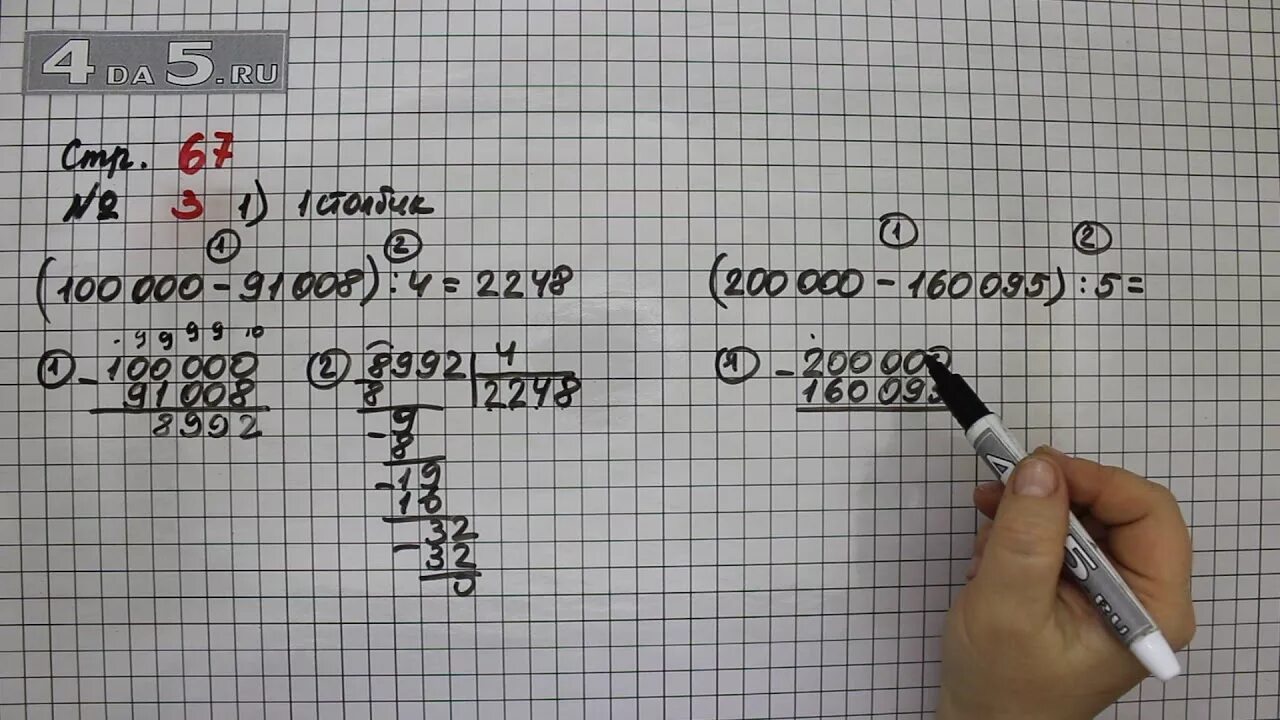 4DA5.RU
Стр. 67
№ 3 1) 1 столбик
① ②
(100 000 - 91 008) : 4 = 2248
. 9 9 9 9 10
① - 100 000
91 008
8992
② 8992 | 4
8 | 2248
9
- 8
- 19
16
- 32
32
0
① ②
(200 000 - 160 095) : 5 =
① - 200 000
160 095
5.RU